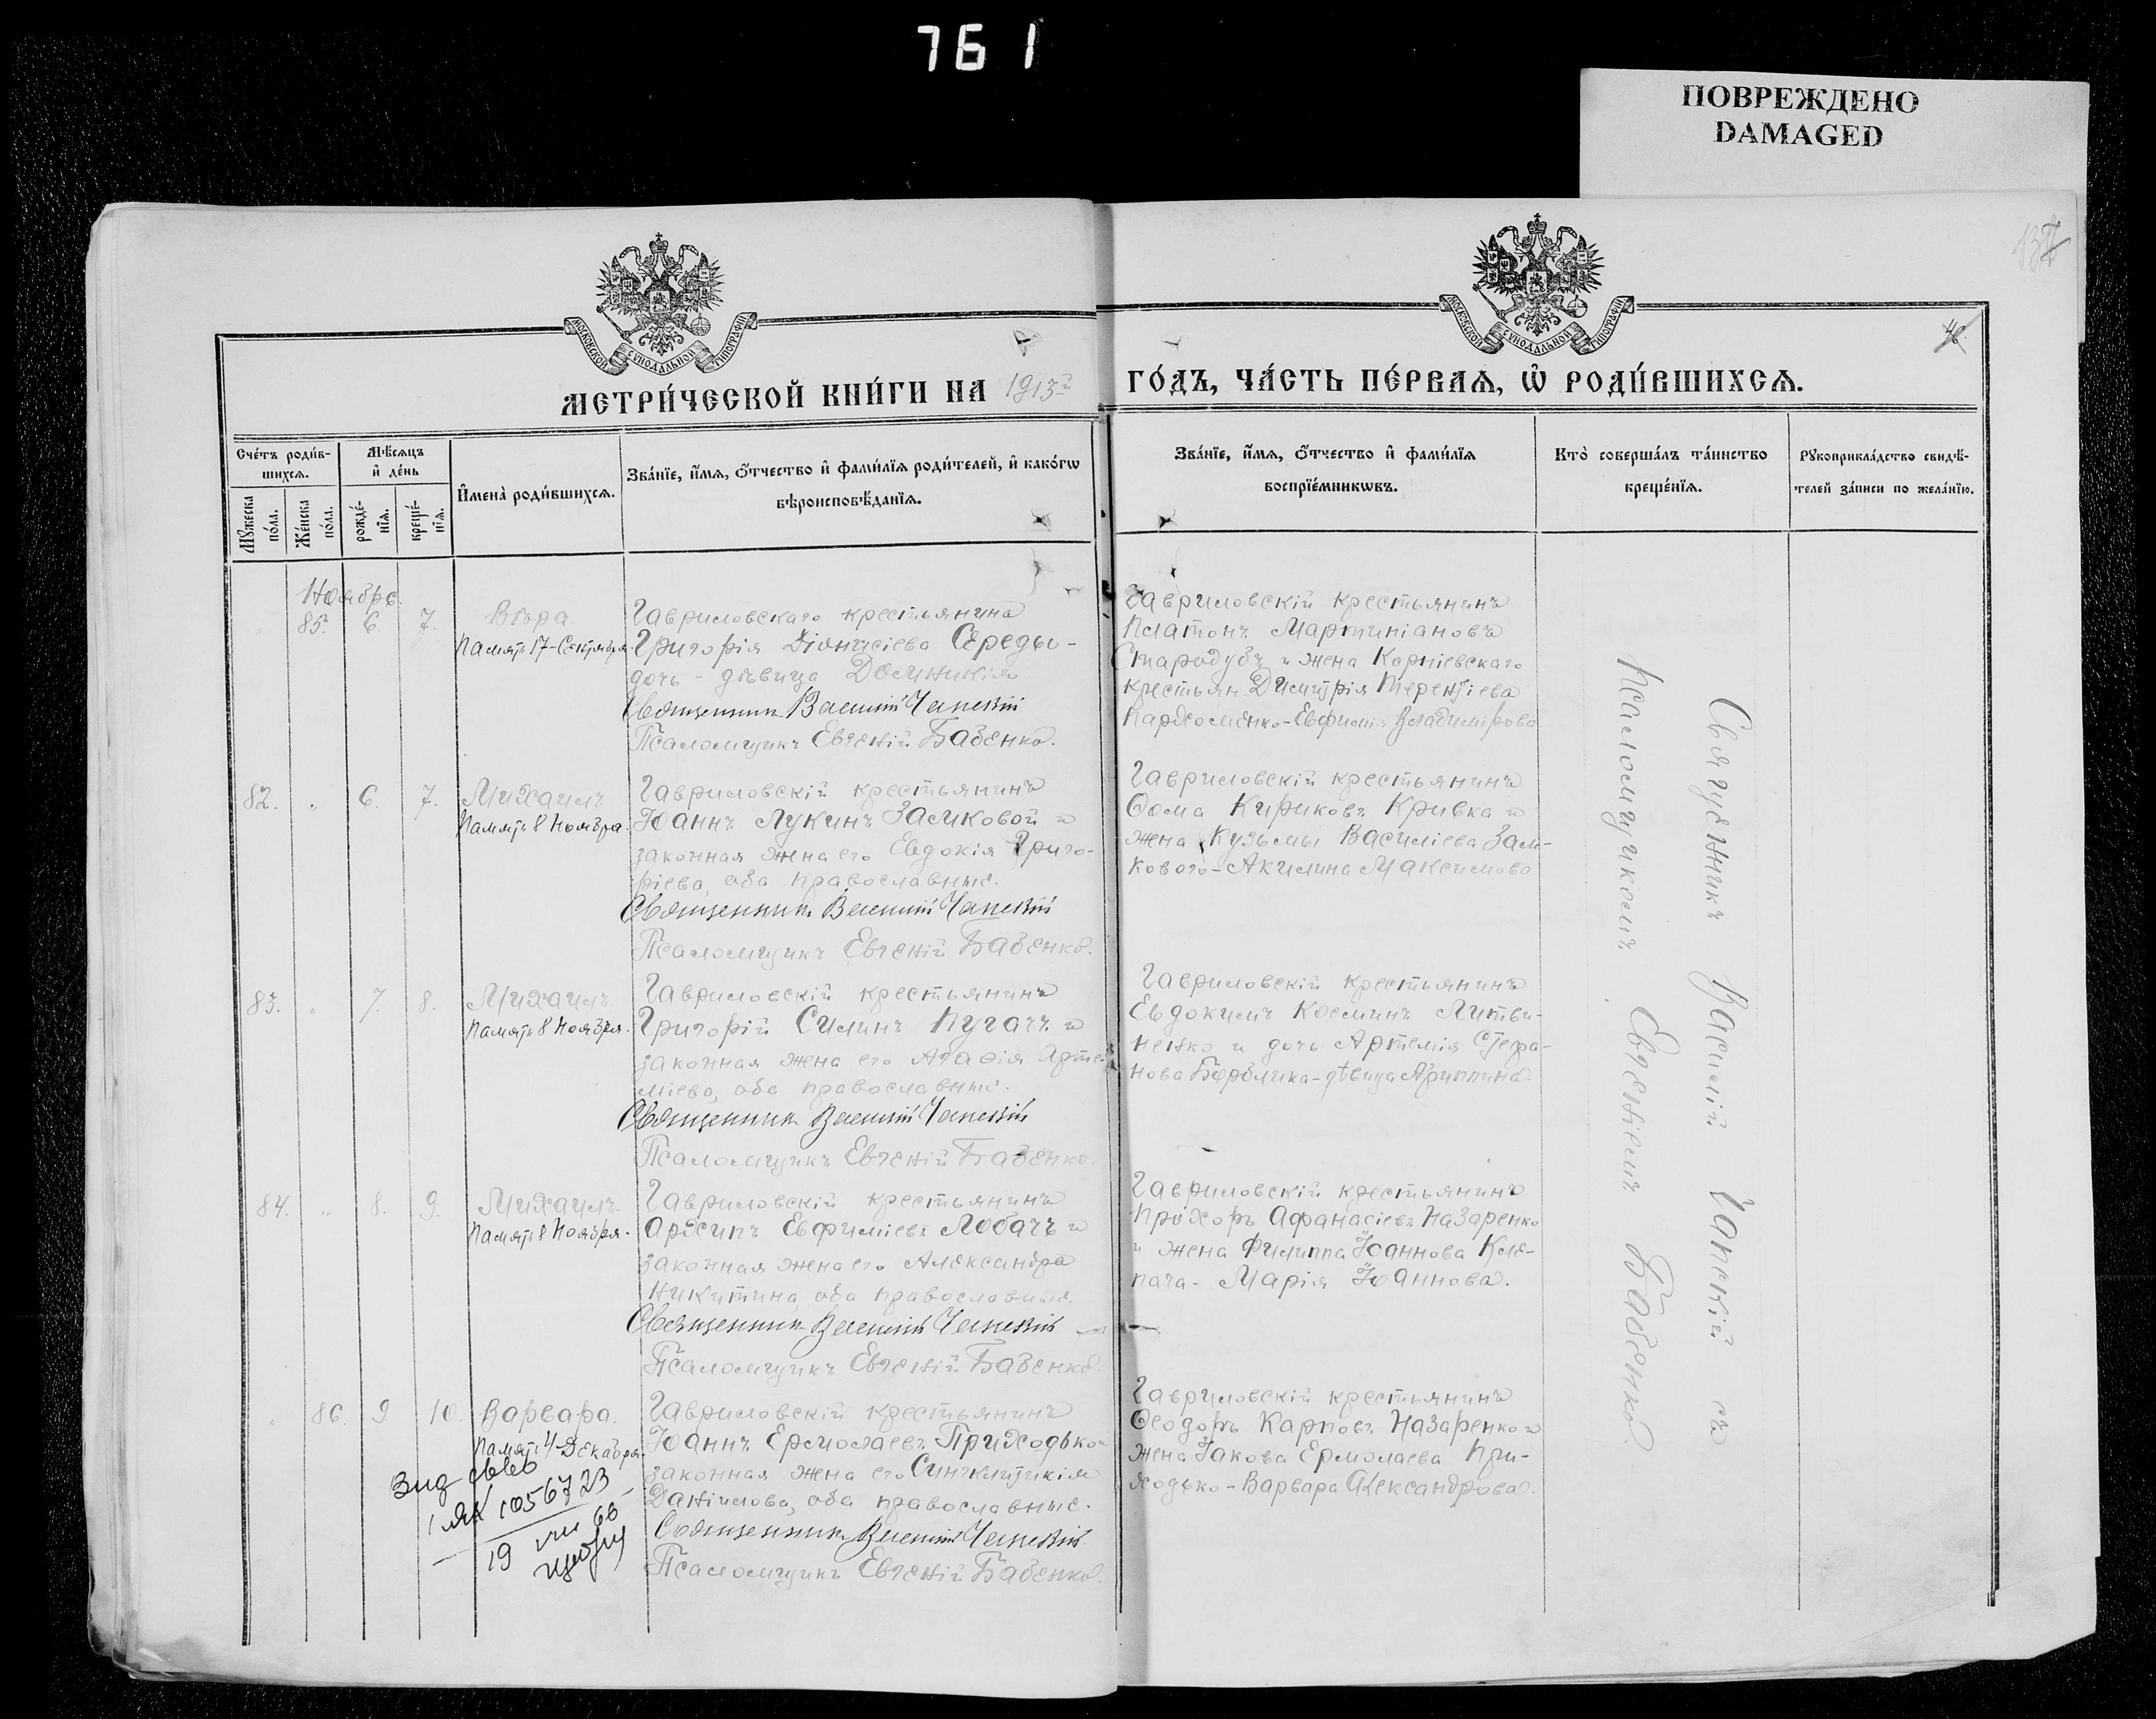 761
ПОВРЕЖДЕНО
DAMAGED
МОСКОВСКОЙ СѴНОДАЛЬНОЙ ТИПОГРАФІИ
МОСКОВСКОЙ СѴНОДАЛЬНОЙ ТИПОГРАФІИ
46.
МЕТРИ́ЧЕСКОЙ КНИ́ГИ НА 1913й ГО́ДЪ, ЧА́СТЬ ПЕ́РВАѦ, Ѡ҆ РОДИ́ВШИХСѦ.
Сче́тъ роди́в-
шихсѧ.
Мѣ́сѧцъ
и҆ де́нь
И҆мена̀ роди́вшихсѧ.
Зва́нїе, и҆́мѧ, ѻ҆́тчество и҆ фами́лїѧ роди́телей, и҆ како́гѡ
вѣроисповѣ́данїѧ.
Зва́нїе, и҆́мѧ, ѻ҆́тчество и҆ фами́лїѧ
воспрїе́мникѡвъ.
Кто̀ соверша́лъ та́инство
креще́нїѧ.
Рꙋкоприкла́дство свидѣ́-
телей за́писи по жела́нїю.
Мꙋ́жеска
по́ла.
Же́нска
по́ла.
рожде́-
нїѧ.
креще́-
нїѧ.
Ноябрь.
" 85. 6. 7. Вѣра.
Память 17-Сентября.
Гавриловскаго крестьянина
Григорія Діонисіева Середы-
дочь - дѣвица Домникія
Священникъ Василій Чапскій
Псаломщикъ Евгеній Бабенко.
Гавриловскій крестьянинъ
Платонъ Мартиніановъ
Стародубъ и жена Корніевскаго
крестьян. Димитрія Терентіева
Пархоменко-Евфимія Владимірова
82. " 6. 7. Михаилъ
Память 8 Ноября.
Гавриловскій крестьянинъ
Іоаннъ Лукинъ Замковой и
законная жена его Евдокія Григо-
ріева, оба православные.
Священникъ Василій Чапскій
Псаломщикъ Евгеній Бабенко.
Гавриловскій крестьянинъ
Ѳома Кириковъ Кривка и
жена Кузьмы Василіева Зам-
кового-Акилина Максимова
83. " 7. 8. Михаилъ.
Память 8 Ноября.
Гавриловскій крестьянинъ
Григорій Силинъ Пугачъ и
законная жена его Агаѳія Арте-
міева, оба православные.
Священникъ Василій Чапскій
Псаломщикъ Евгеній Бабенко.
Гавриловскій крестьянинъ
Евдокимъ Косминъ Литви-
ненко и дочь Артемія Стефа-
нова -дѣвица Агриппина.
84. " 8. 9. Михаилъ.
Память 8 Ноября.
Гавриловскій крестьянинъ
Архипъ Евфиміевъ Лобачъ и
законная жена его Александра
Никитина, оба православные.
Священникъ Василій Чапскій
Псаломщикъ Евгеній Бабенко.
Гавриловскій крестьянинъ
Прохоръ Афанасіевъ Назаренко
и жена Филиппа Іоаннова Кле-
пача- Марія Іоаннова.
" 86. 9. 10. Варвара.
Память 4-Декабря
Гавриловскій крестьянинъ
Іоаннъ Ермолаевъ Приходько и
законная жена его Синклитикія
Даніилова, оба православные.
Священникъ Василій Чапскій
Псаломщикъ Евгеній Бабенко.
Гавриловскій крестьянинъ
Ѳеодоръ Карповъ Назаренко и
жена Іакова Ермолаева При-
ходько-Варвара Александрова.
1056723
19
66
Священникъ Василій Чапскій съ
Псаломщикомъ Евгеніемъ Бабенко.